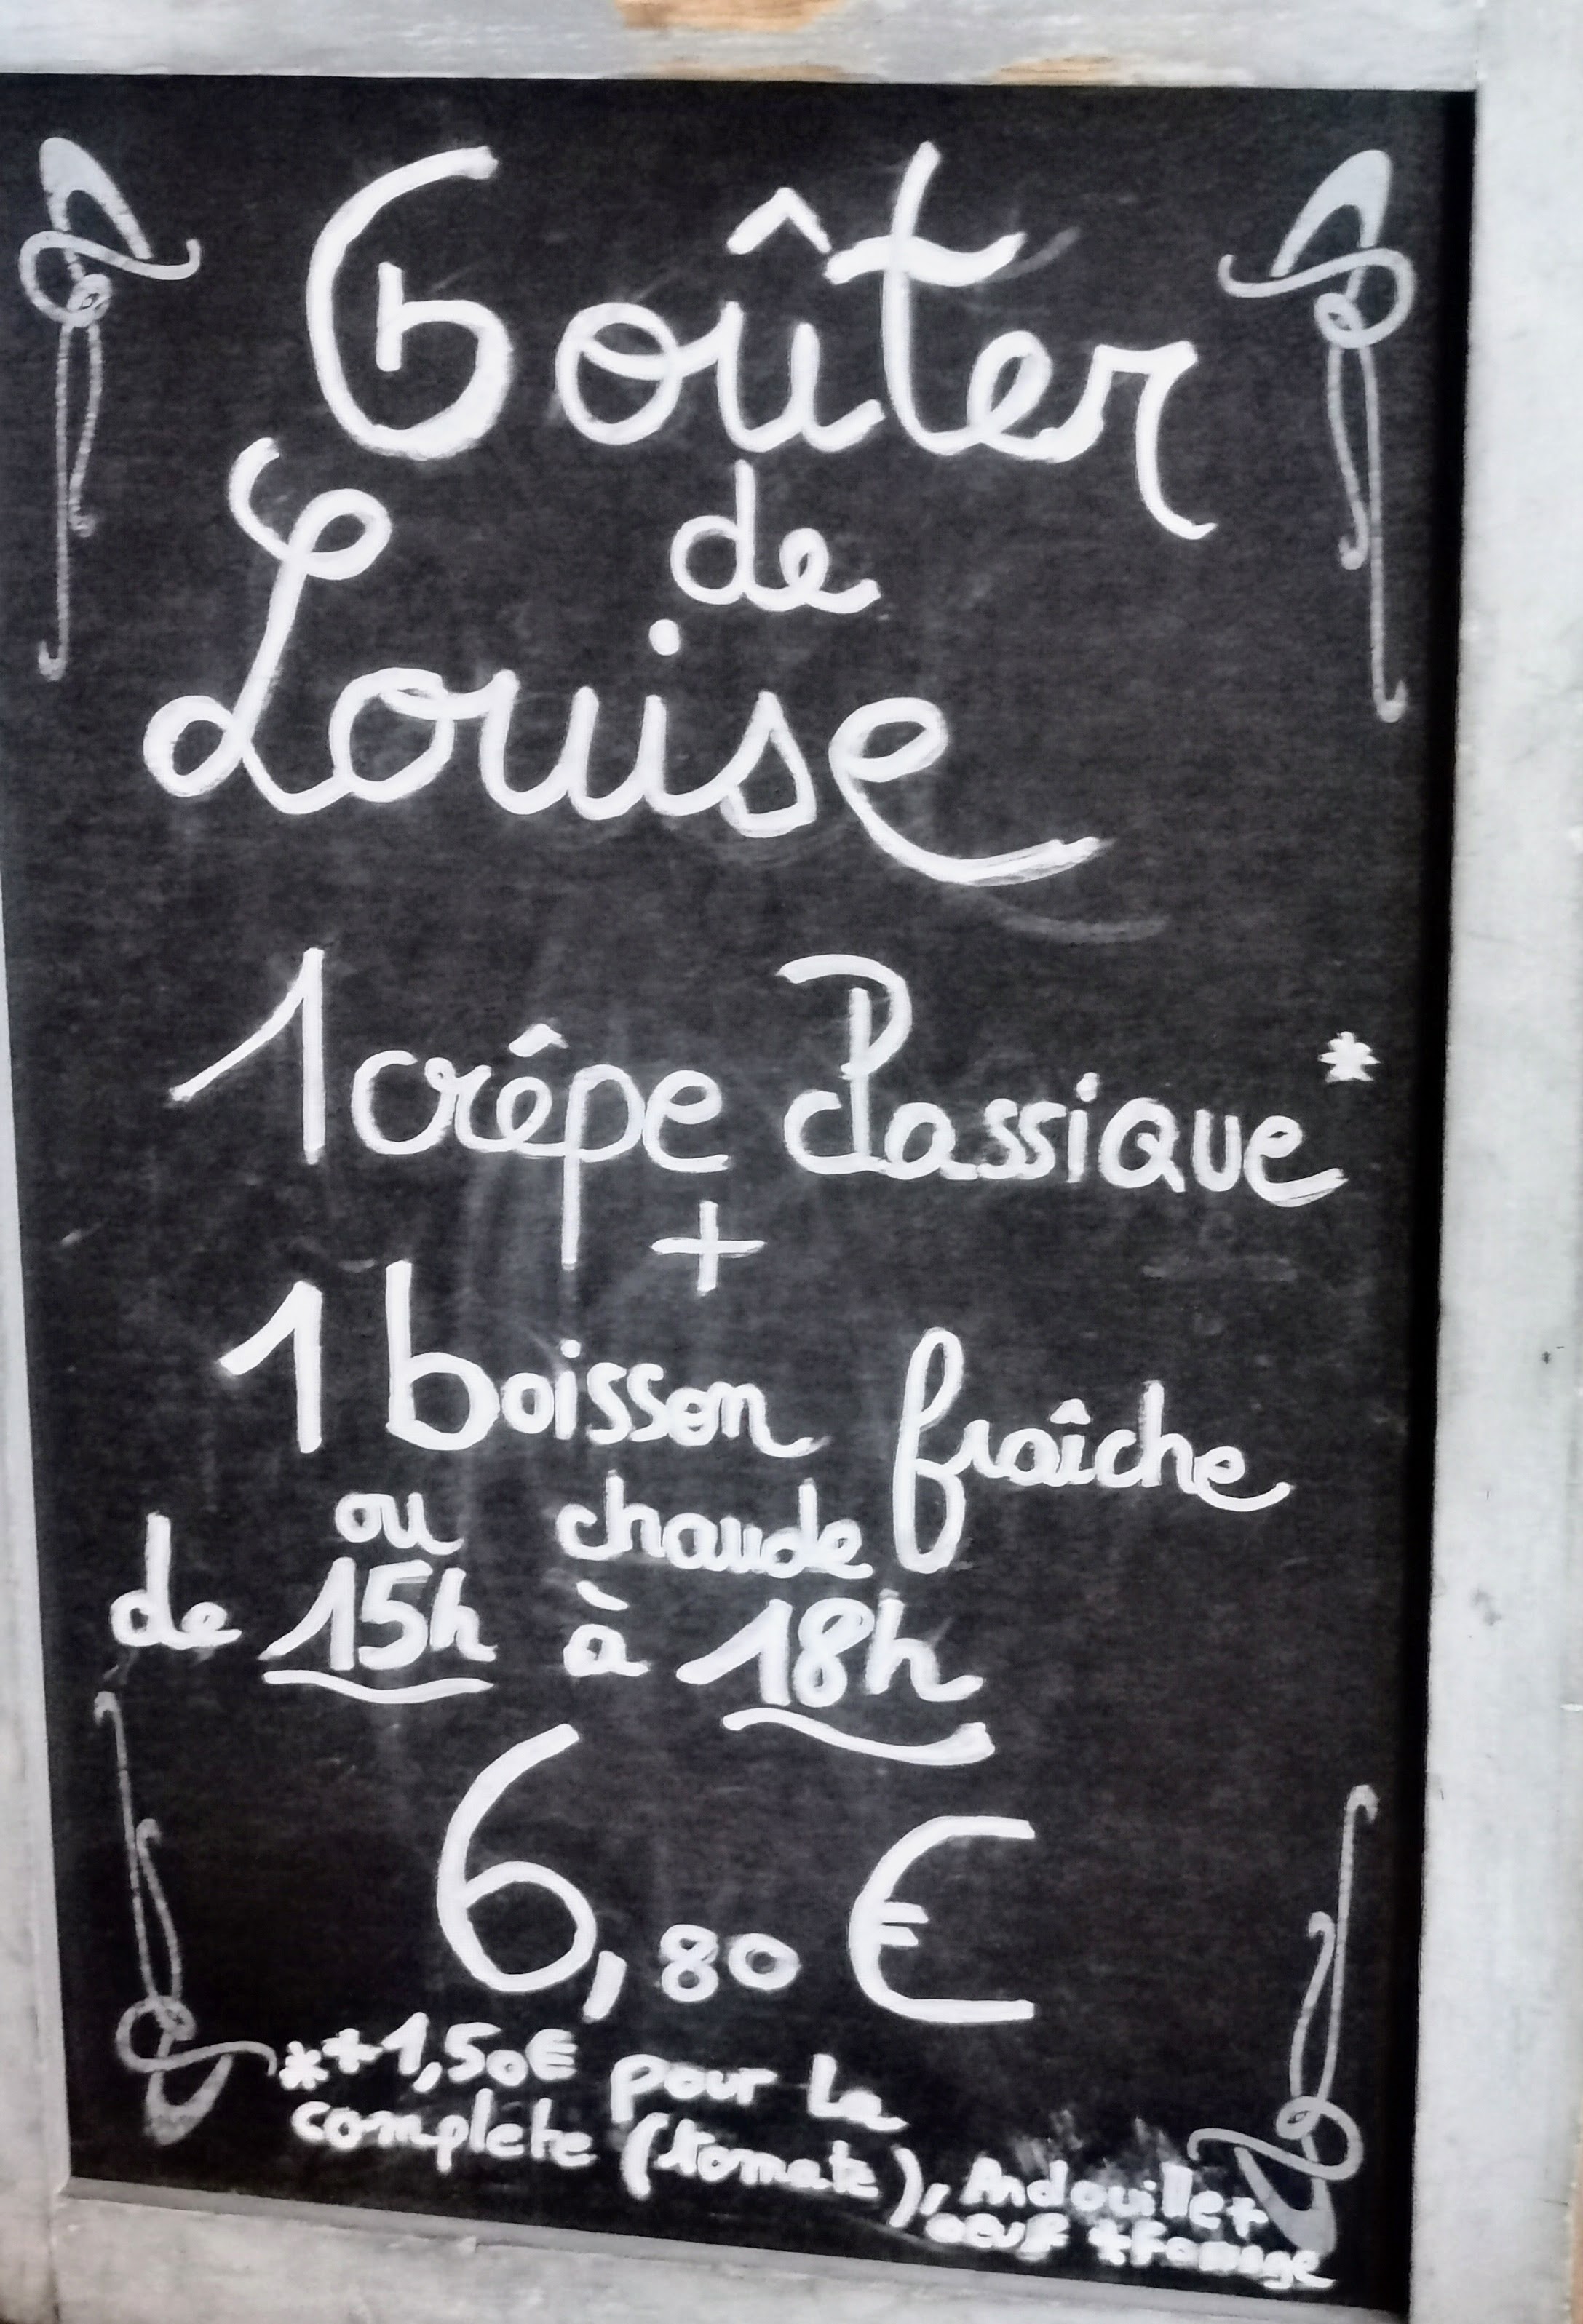 Goûter
de
Louise
1 crêpe classique*
+
1 boisson fraîche
ou chaude
de 15h à 18h
6,80 €
*+1,50€ pour la
complète (tomate), Andouille+
oeuf +fromage